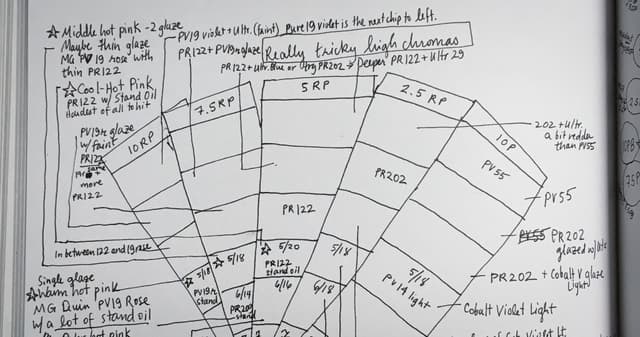 ☆ Middle hot pink - 2 glaze
Maybe thin glaze
MG PV19 rose with
thin PR122
☆ Cool-Hot Pink
PR122 w/ Stand Oil
Hardest of all to hit
PV19r glaze
w/ faint
PR122
more
PR122
PV19 violet + Ultr. (faint) Pure 19 violet is the next chip to left.
PR122 + PV19r glaze
Really tricky high chromas
PR122 + ultr. blue or try PR202 → Deeper PR122 + Ultr 29
10 RP
7.5 RP
5 RP
2.5 RP
10P
202 + Ultr.
a bit redder
than PV55
PV55
PV55
PR202
PR122
PR202
glazed w/
PR202 + Cobalt V glaze
light
Cobalt Violet Light
In between 122 and 19 rose
☆ 5/18
☆ 5/20
PR122
stand oil
6/16
5/18
6/18
5/18
PV14 light
5/18
PV19r
stand
6/14
PR209
stand
Single glaze
☆ Warm hot pink
MG Quin PV19 Rose
w/ a lot of stand oil
hot pink